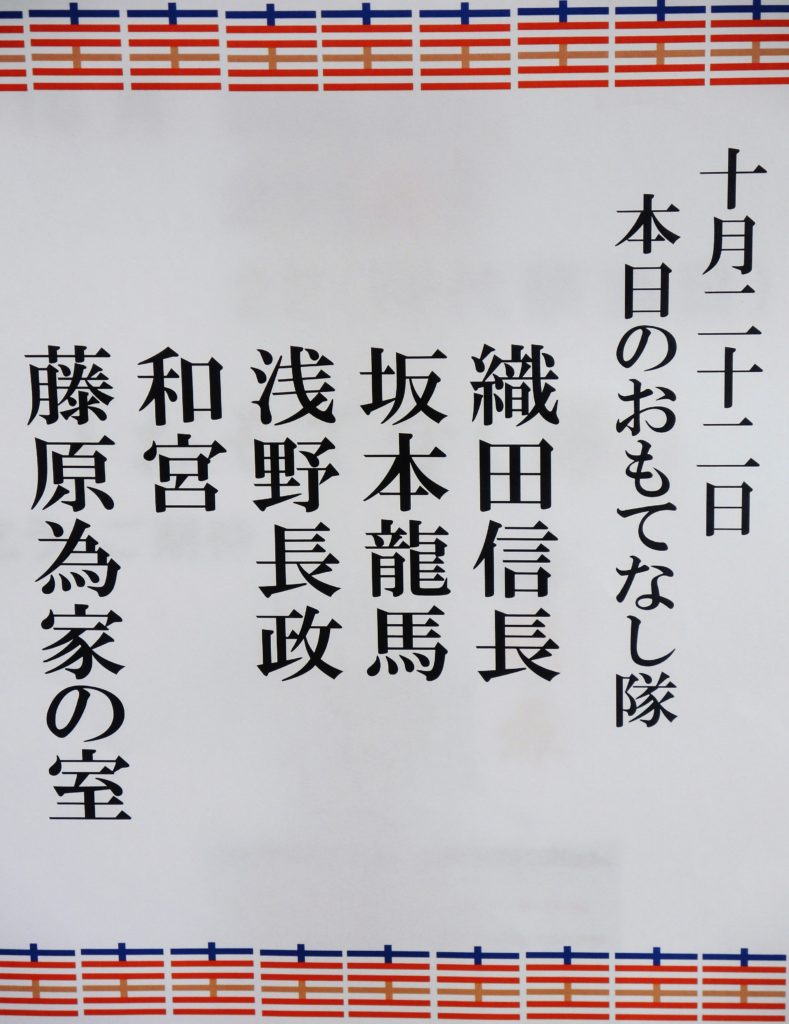 十月二十二日
本日のおもてなし隊
織田信長
坂本龍馬
浅野長政
和宮
藤原為家の室